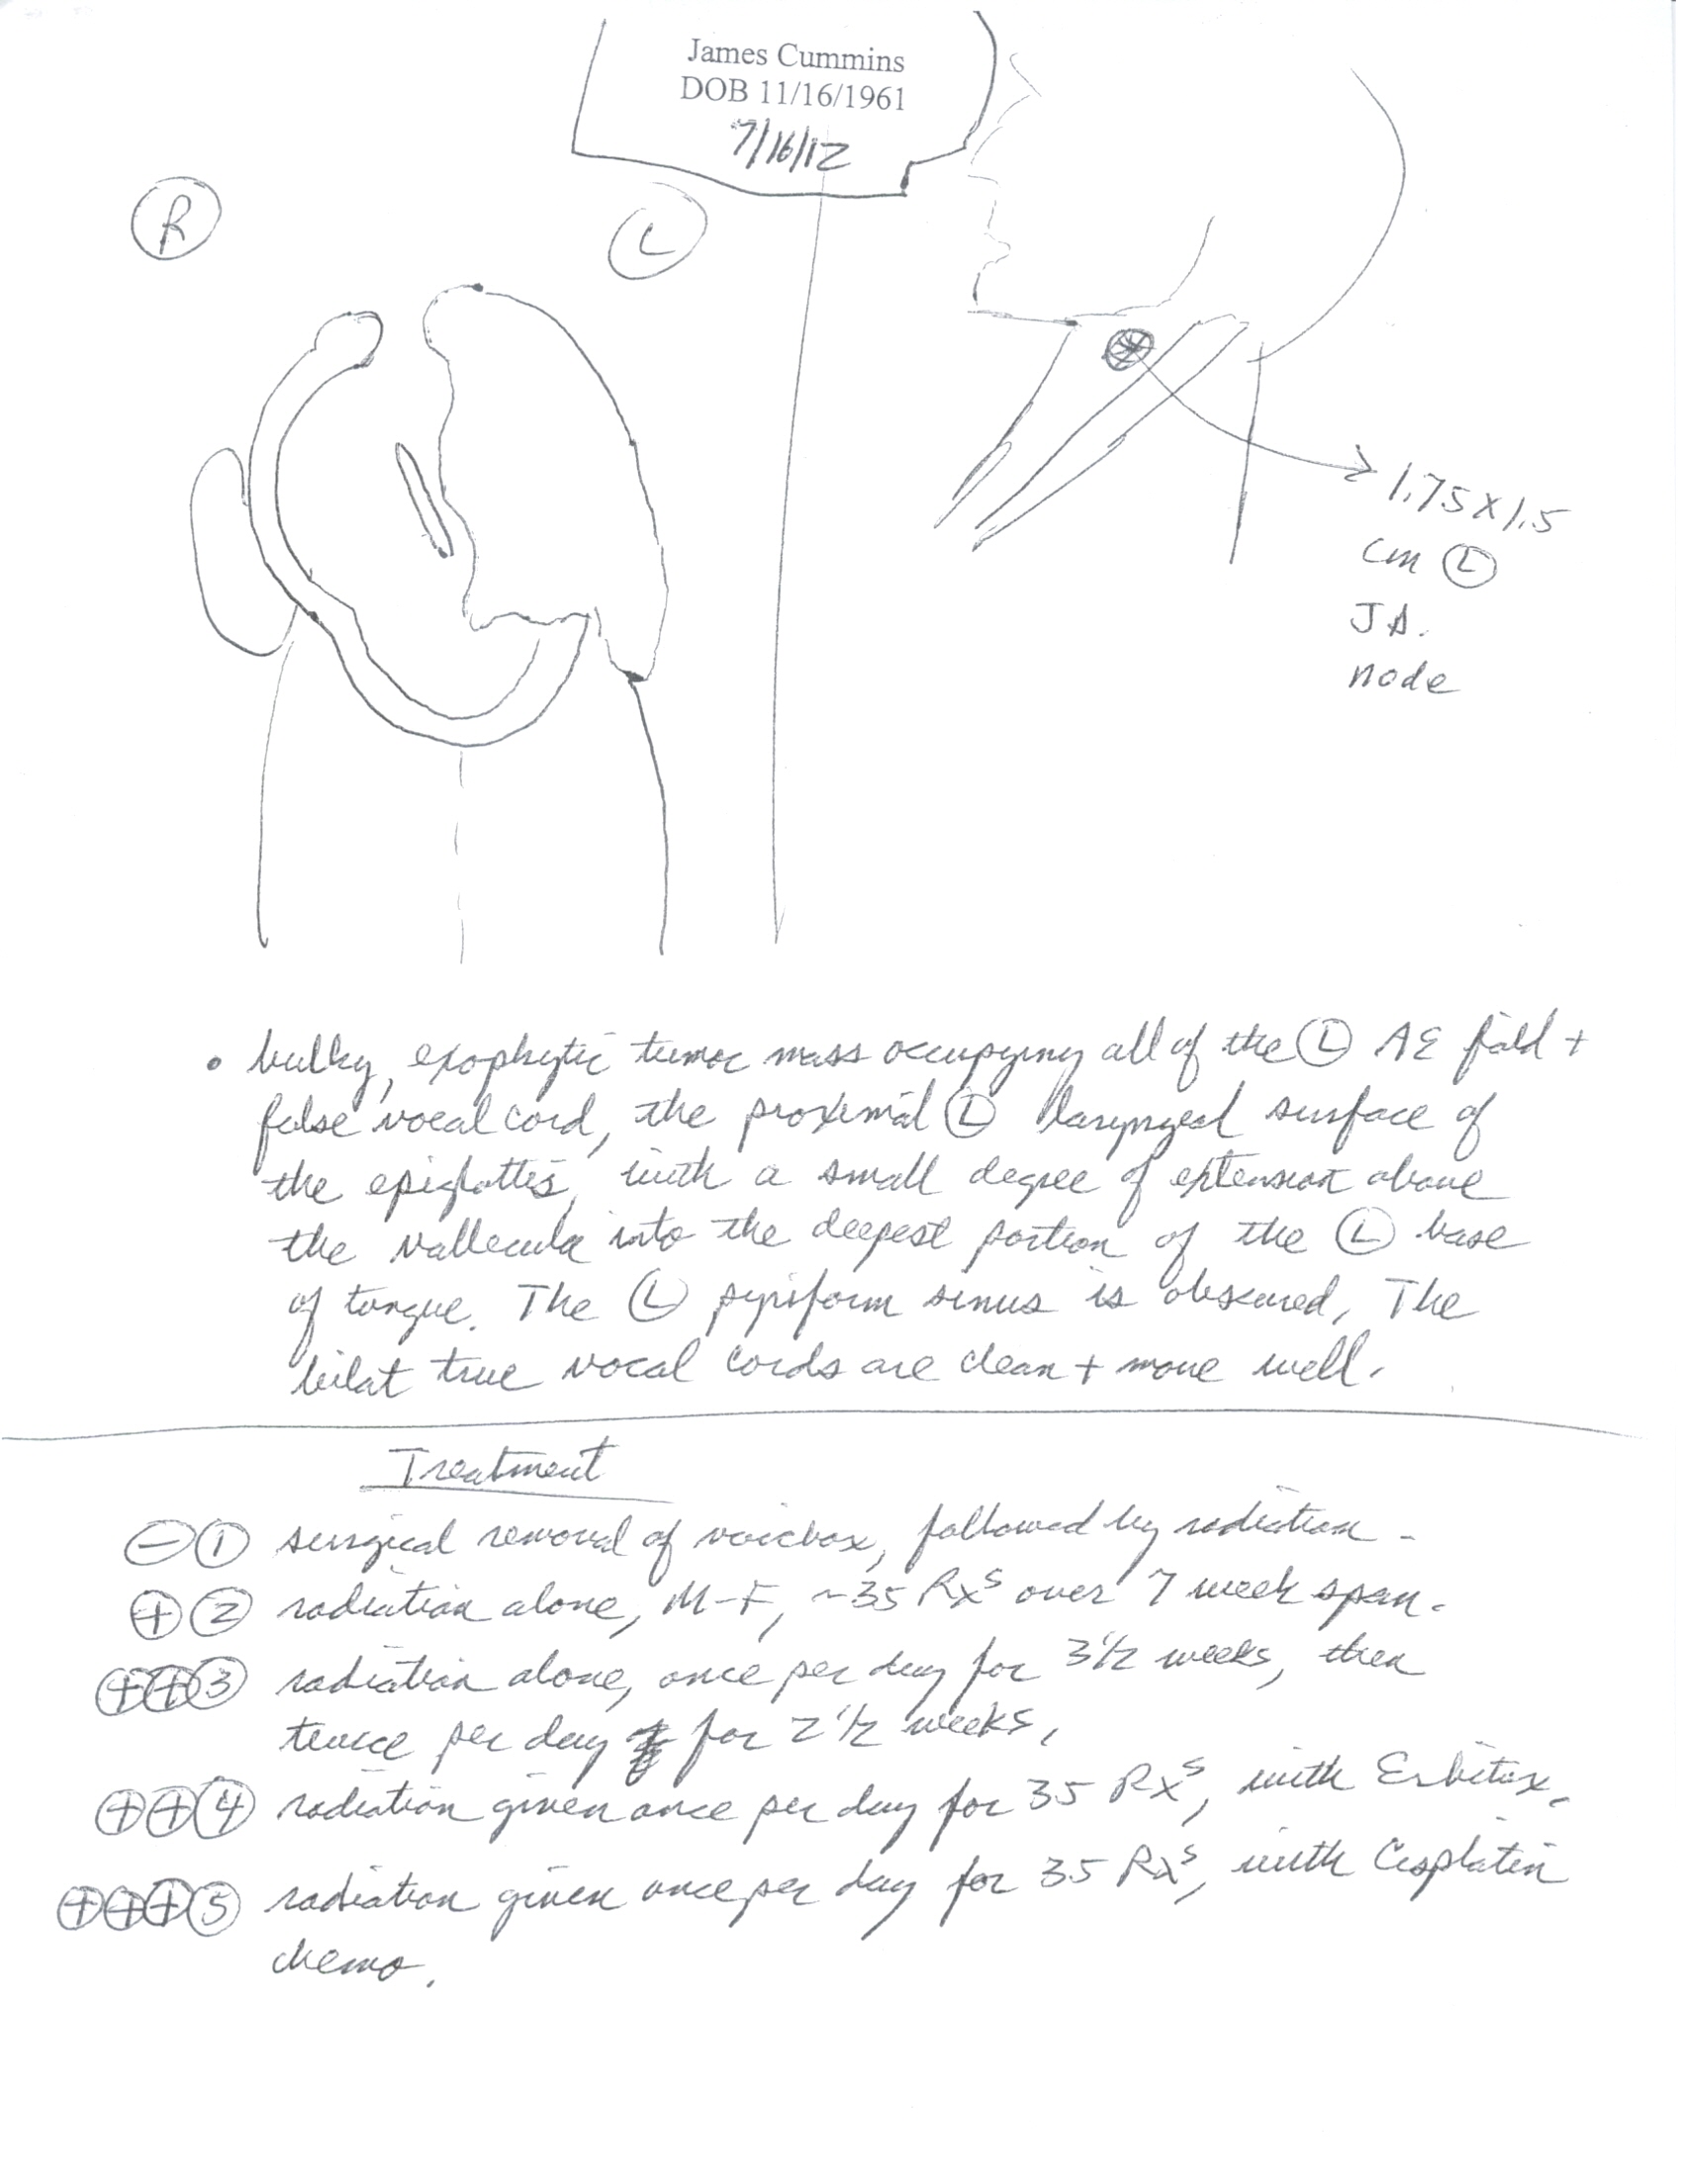 James Cummins
DOB 11/16/1961
7/16/12
R
L
1.75 x 1.5
cm L
J.D.
node
• bulky, exophytic tumor mass occupying all of the L AE fold +
false vocal cord, the proximal L laryngeal surface of
the epiglottis, with a small degree of extension above
the vallecula into the deepest portion of the L base
of tongue. The L pyriform sinus is obscured, The
bilat true vocal cords are clean + move well.
Treatment
- 1 surgical removal of voicebox, followed by radiation -
+ 2 radiation alone, M-F, ~35 Rxs over 7 week span.
++ 3 radiation alone, once per day for 3 1/2 weeks, then
twice per day for 2 1/2 weeks,
++ 4 radiation given once per day for 35 Rxs, with Erbitux.
+++ 5 radiation given once per day for 35 Rxs, with Cisplatin
chemo.